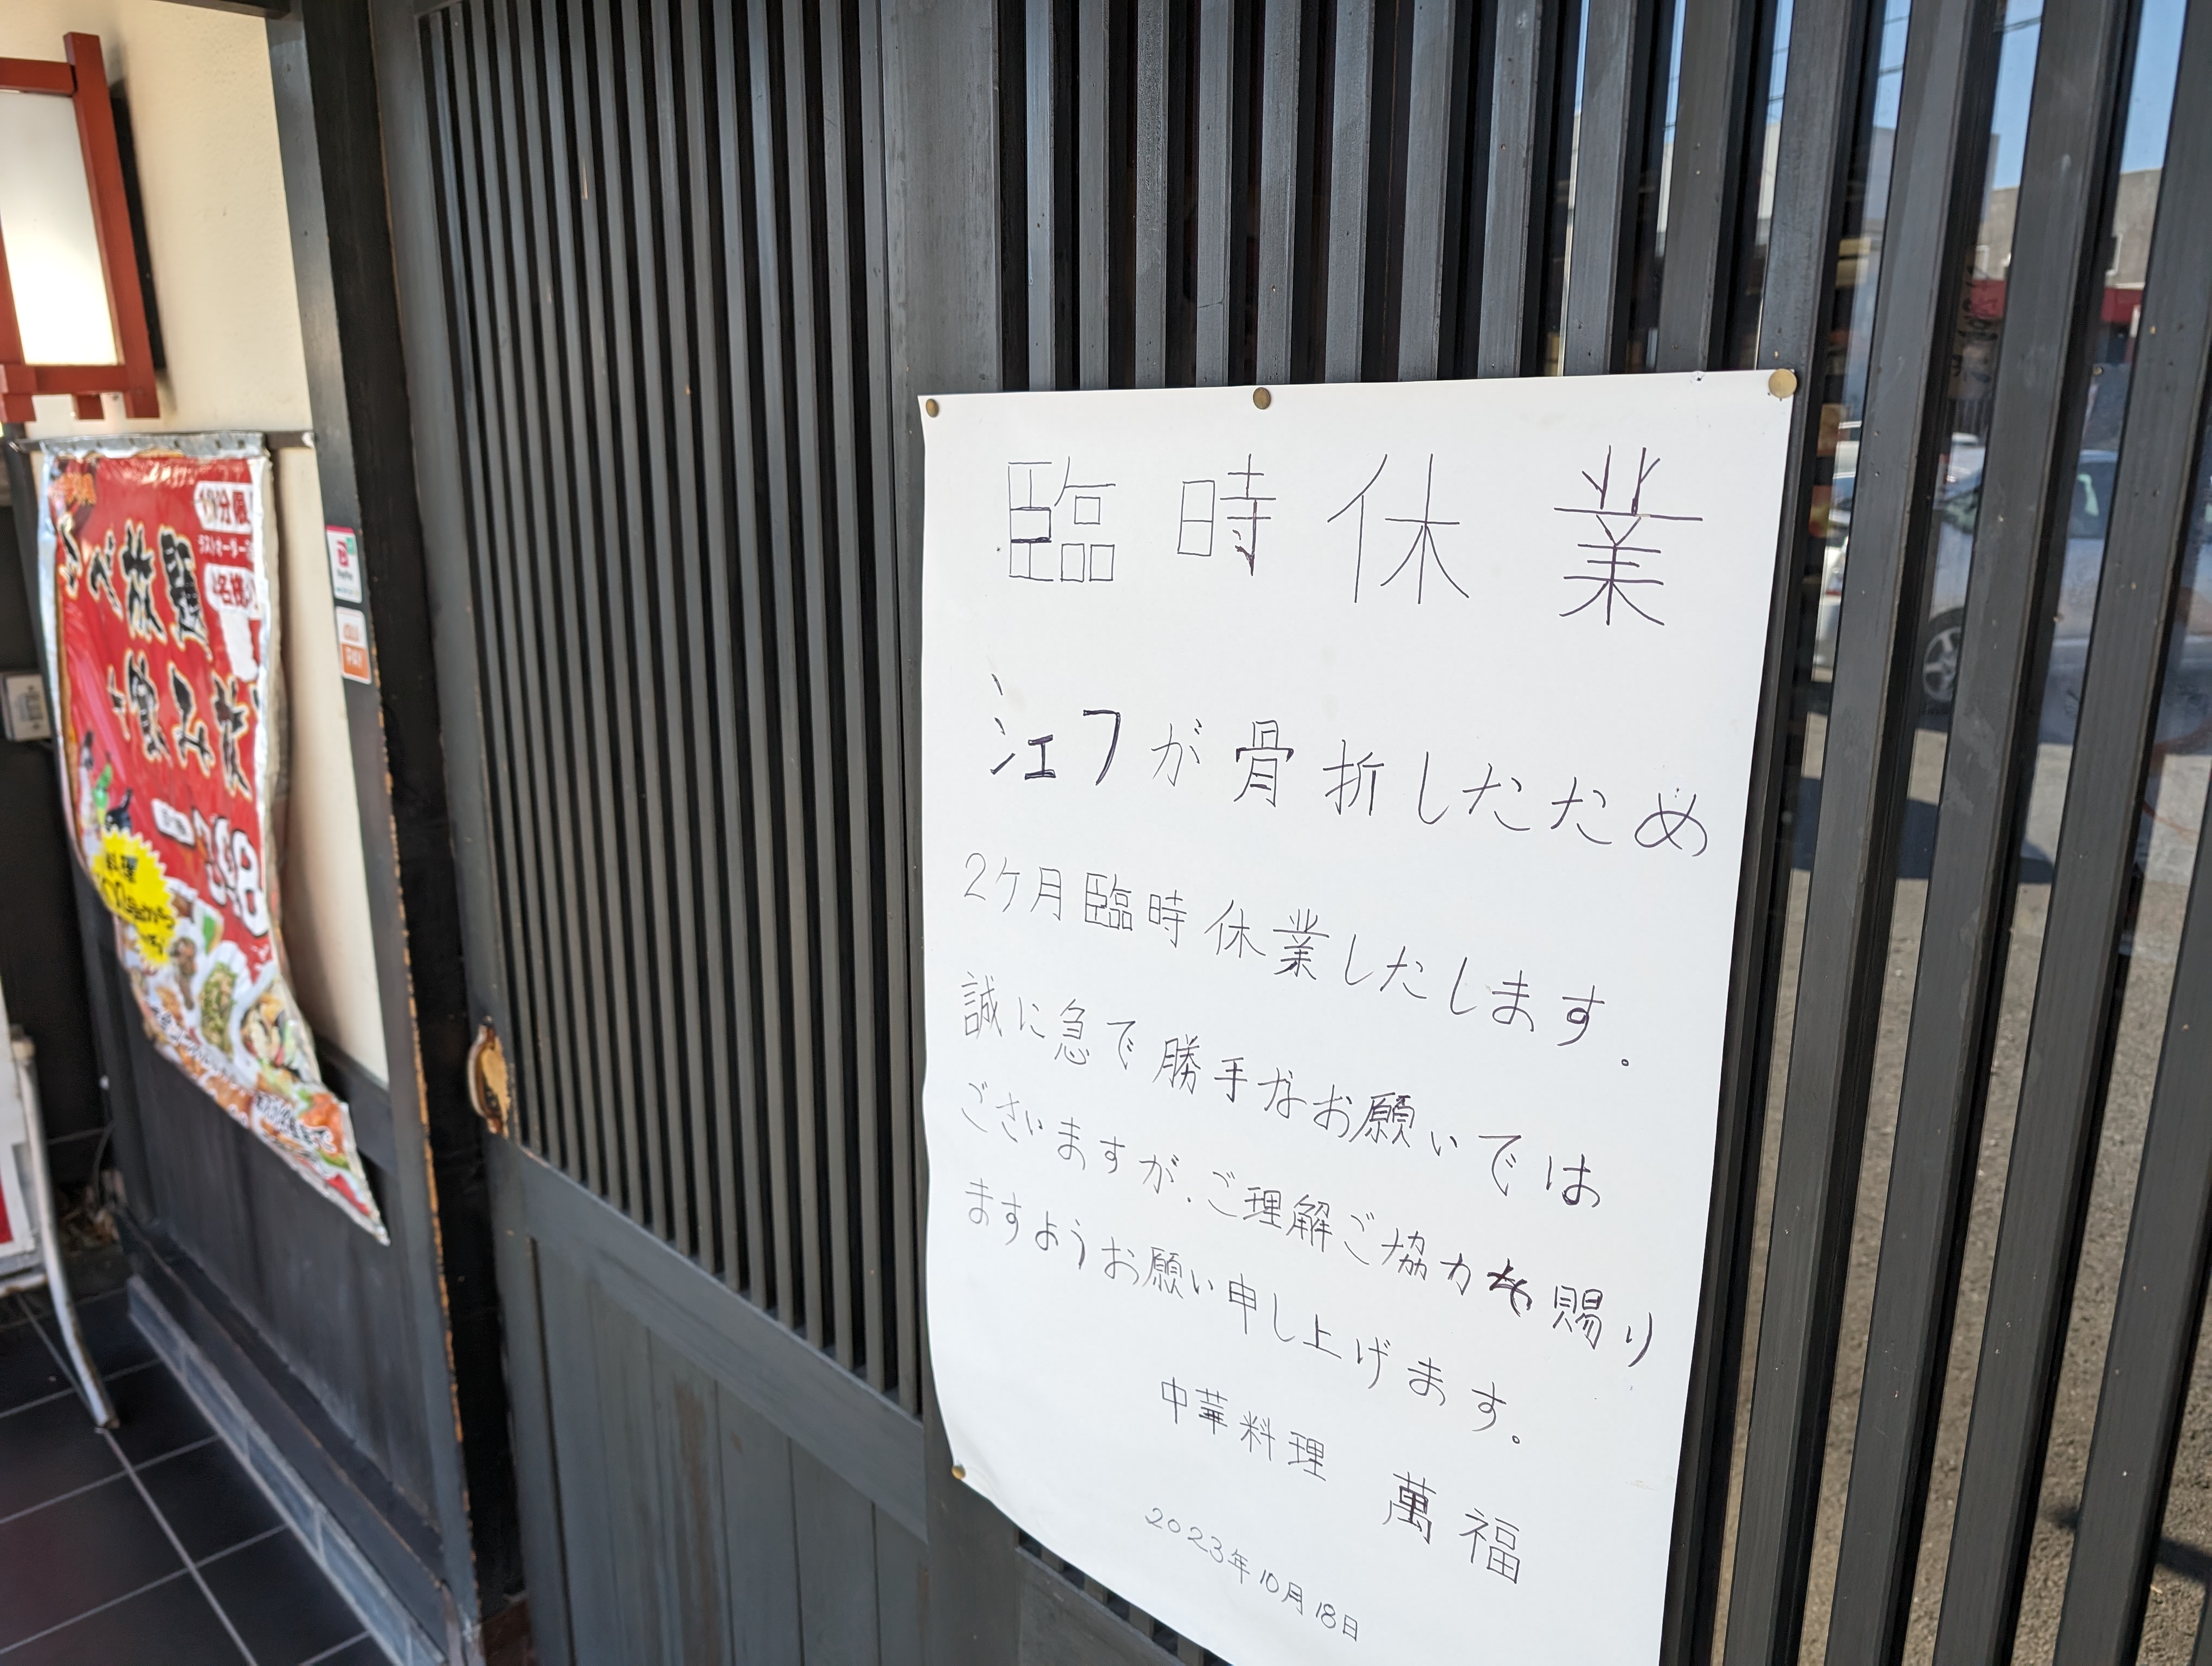 臨時休業
シェフが骨折したため
2ケ月臨時休業したします.
誠に急で勝手なお願いでは
ございますが、ご理解ご協力も賜り
ますようお願い申し上げます。
中華料理 萬福
2023年10月18日
べ放題
飲み放
料理